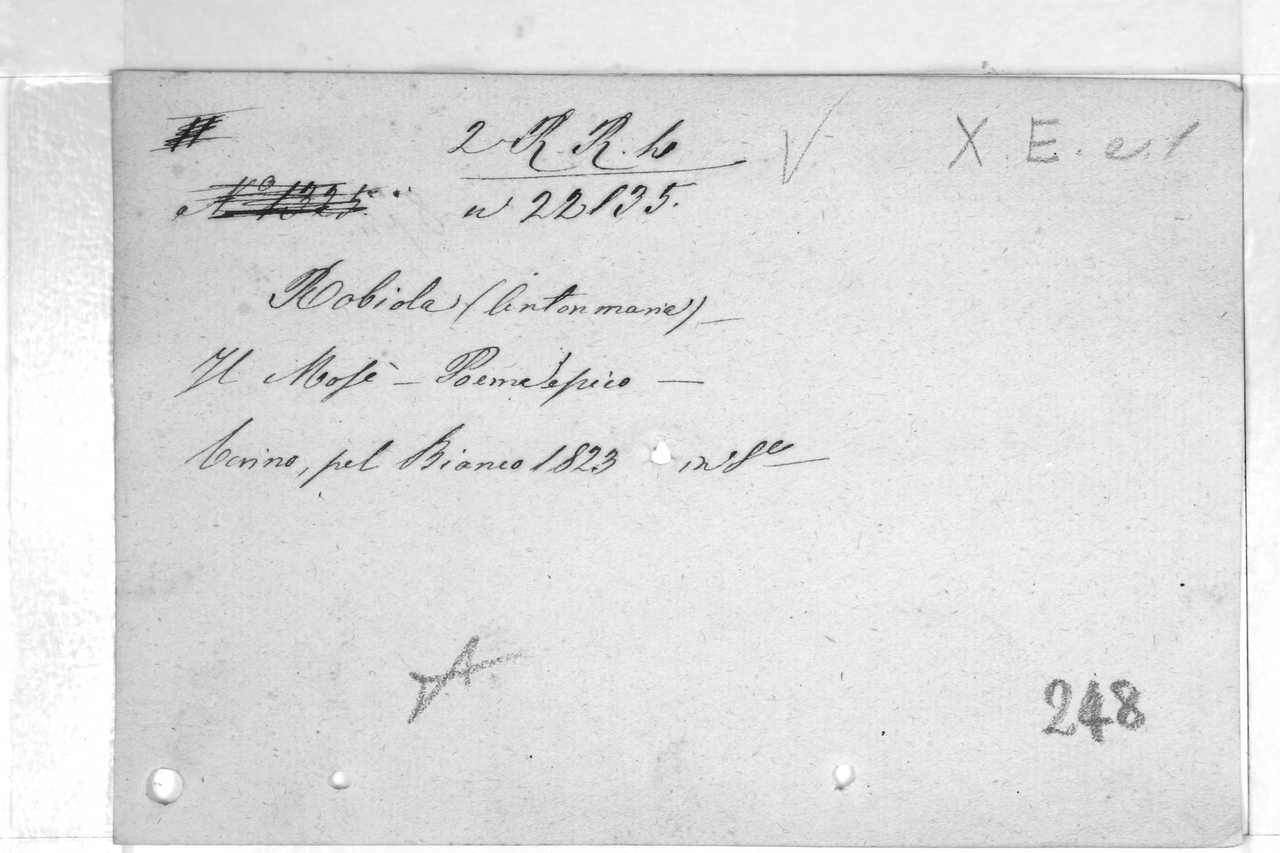 2 R. R. h X. E. e. 1
N° 1325
n 22135.
Robiola (Antonmaria) –
Il Mosè – Poema epico –
Torino, pel Bianco 1823 in 8°
248